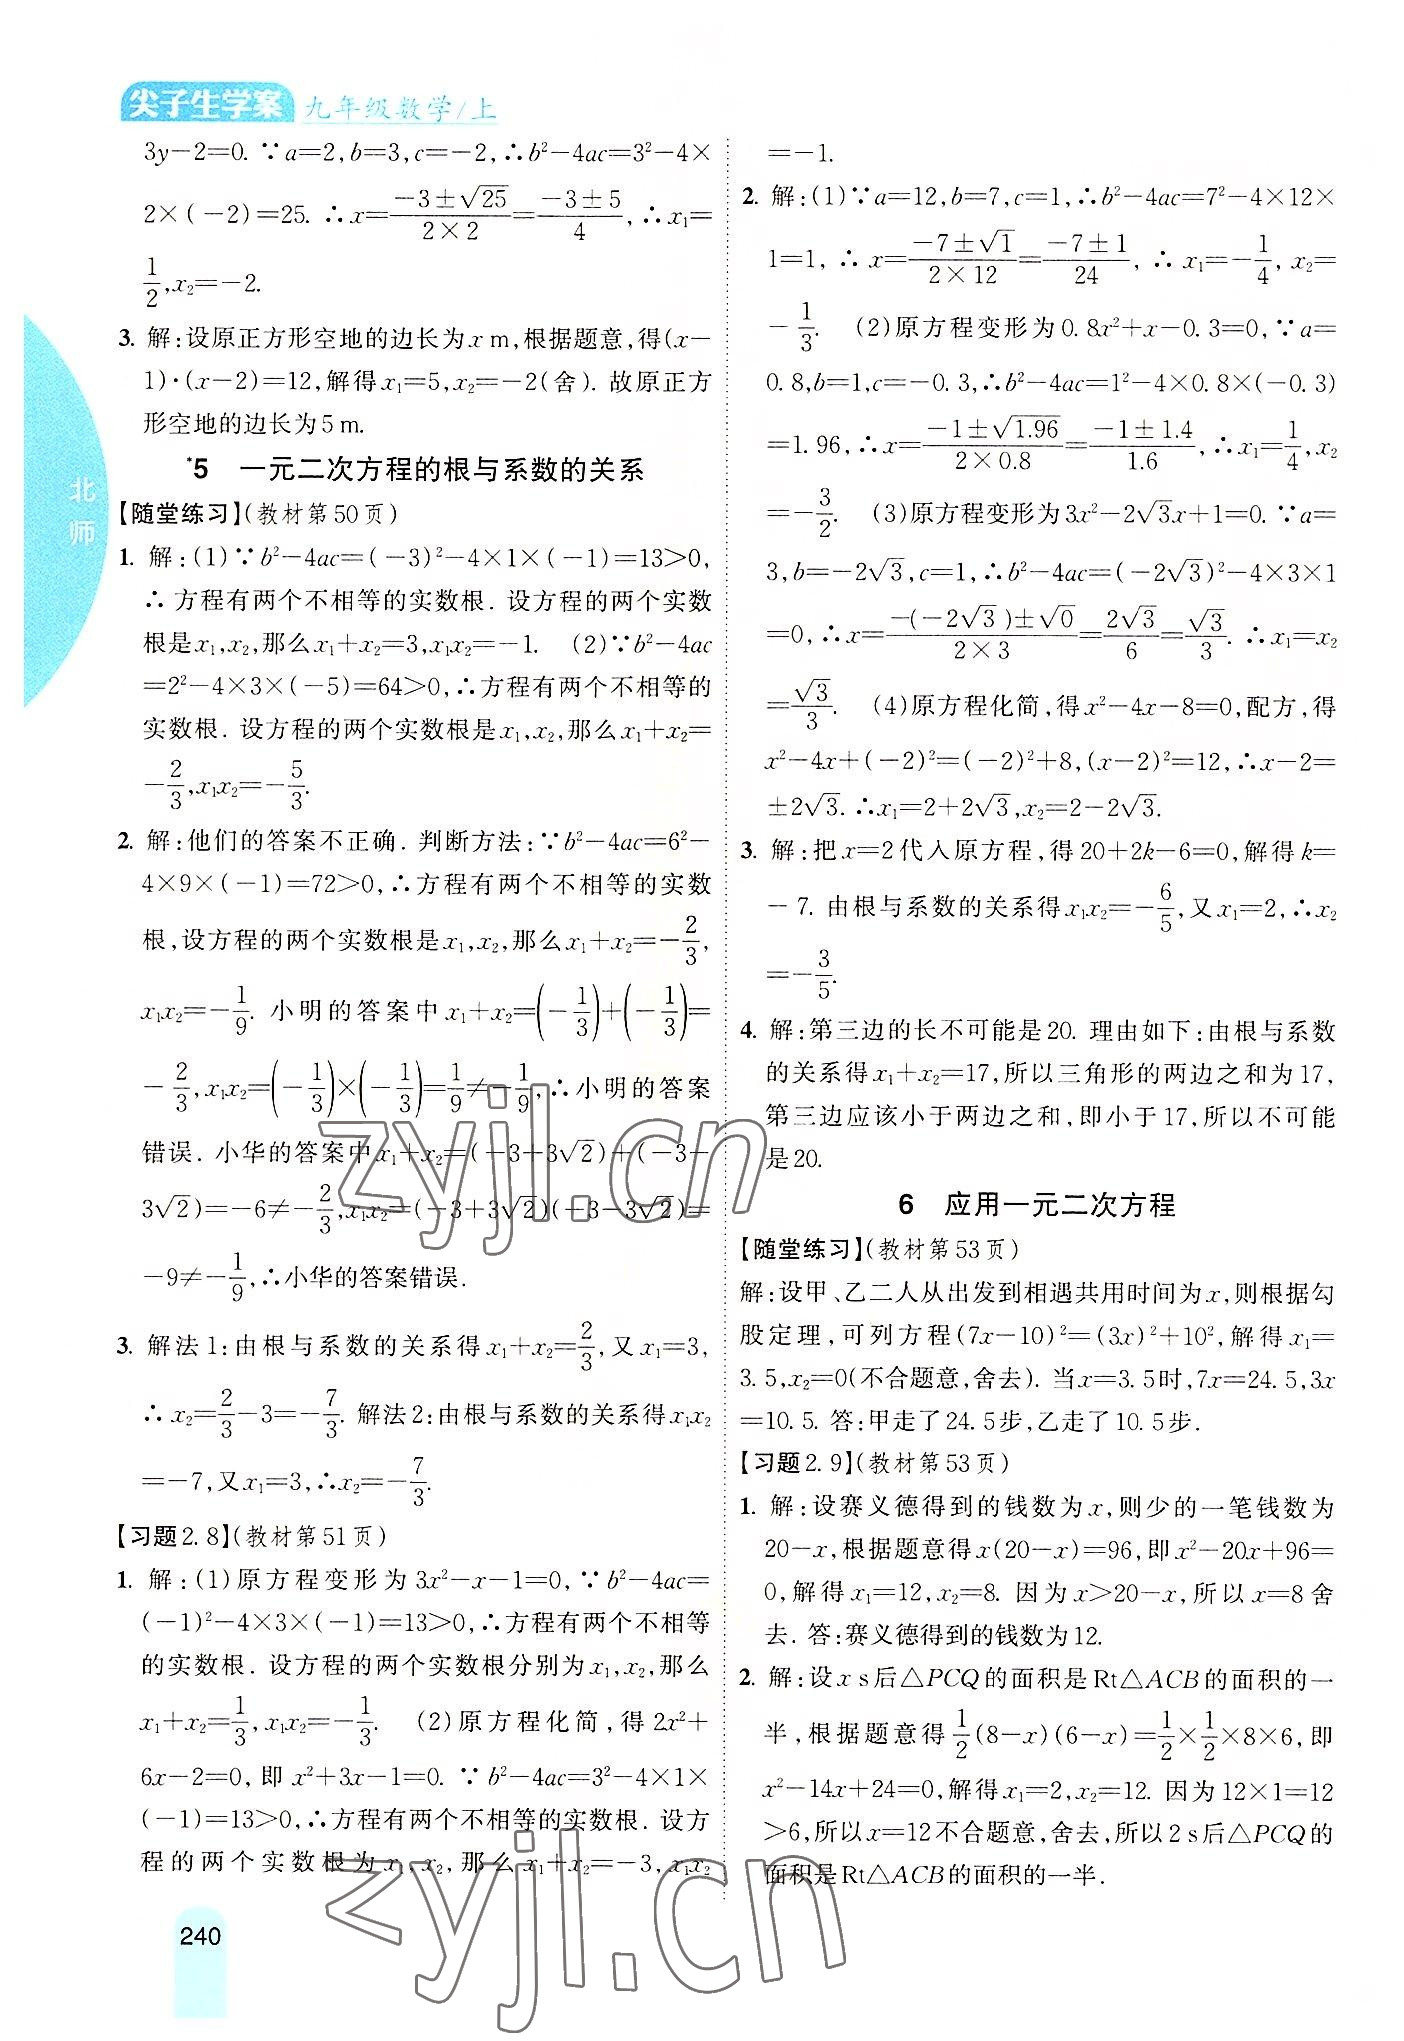 尖子生学案 九年级数学/上
北师
3y-2=0. ∵a=2,b=3,c=-2,∴b²-4ac=3²-4×
2×(-2)=25. ∴x=\frac{-3±√25}{2×2}=\frac{-3±5}{4}, ∴x₁=
\frac{1}{2},x₂=-2.
3. 解:设原正方形空地的边长为x m,根据题意,得(x-
1)·(x-2)=12,解得x₁=5,x₂=-2(舍). 故原正方
形空地的边长为5 m.
*5 一元二次方程的根与系数的关系
【随堂练习】(教材第50页)
1. 解:(1)∵b²-4ac=(-3)²-4×1×(-1)=13>0,
∴方程有两个不相等的实数根. 设方程的两个实数
根是x₁,x₂,那么x₁+x₂=3,x₁x₂=-1. (2)∵b²-4ac
=2²-4×3×(-5)=64>0,∴方程有两个不相等的
实数根. 设方程的两个实数根是x₁,x₂,那么x₁+x₂=
-\frac{2}{3},x₁x₂=-\frac{5}{3}.
2. 解:他们的答案不正确. 判断方法:∵b²-4ac=6²-
4×9×(-1)=72>0,∴方程有两个不相等的实数
根,设方程的两个实数根是x₁,x₂,那么x₁+x₂=-\frac{2}{3},
x₁x₂=-\frac{1}{9}. 小明的答案中x₁+x₂=(-\frac{1}{3})+(-\frac{1}{3})=
-\frac{2}{3},x₁x₂=(-\frac{1}{3})×(-\frac{1}{3})=\frac{1}{9}≠-\frac{1}{9},∴小明的答案
错误. 小华的答案中x₁+x₂=(-3+3√2)+(-3-
3√2)=-6≠-\frac{2}{3},x₁x₂=(-3+3√2)(-3-3√2)=
-9≠-\frac{1}{9},∴小华的答案错误.
3. 解法1:由根与系数的关系得x₁+x₂=\frac{2}{3},又x₁=3,
∴x₂=\frac{2}{3}-3=-\frac{7}{3}. 解法2:由根与系数的关系得x₁x₂
=-7,又x₁=3,∴x₂=-\frac{7}{3}.
【习题2.8】(教材第51页)
1. 解:(1)原方程变形为3x²-x-1=0,∵b²-4ac=
(-1)²-4×3×(-1)=13>0,∴方程有两个不相等
的实数根. 设方程的两个实数根分别为x₁,x₂,那么
x₁+x₂=\frac{1}{3},x₁x₂=-\frac{1}{3}. (2)原方程化简,得2x²+
6x-2=0,即x²+3x-1=0. ∵b²-4ac=3²-4×1×
(-1)=13>0,∴方程有两个不相等的实数根. 设方
程的两个实数根为x₁,x₂,那么x₁+x₂=-3,x₁x₂
240
=-1.
2. 解:(1)∵a=12,b=7,c=1,∴b²-4ac=7²-4×12×
1=1, ∴x=\frac{-7±√1}{2×12}=\frac{-7±1}{24}, ∴x₁=-\frac{1}{4}, x₂=
-\frac{1}{3}. (2)原方程变形为0.8x²+x-0.3=0,∵a=
0.8,b=1,c=-0.3,∴b²-4ac=1²-4×0.8×(-0.3)
=1.96,∴x=\frac{-1±√1.96}{2×0.8}=\frac{-1±1.4}{1.6},∴x₁=\frac{1}{4},x₂
=-\frac{3}{2}. (3)原方程变形为3x²-2√3x+1=0.∵a=
3,b=-2√3,c=1,∴b²-4ac=(-2√3)²-4×3×1
=0,∴x=\frac{-(-2√3)±√0}{2×3}=\frac{2√3}{6}=\frac{√3}{3}. ∴x₁=x₂
=\frac{√3}{3}. (4)原方程化简,得x²-4x-8=0,配方,得
x²-4x+(-2)²=(-2)²+8,(x-2)²=12,∴x-2=
±2√3. ∴x₁=2+2√3,x₂=2-2√3.
3. 解:把x=2代入原方程,得20+2k-6=0,解得k=
-7. 由根与系数的关系得x₁x₂=-\frac{6}{5},又x₁=2,∴x₂
=-\frac{3}{5}.
4. 解:第三边的长不可能是20. 理由如下:由根与系数
的关系得x₁+x₂=17,所以三角形的两边之和为17,
第三边应该小于两边之和,即小于17,所以不可能
是20.
6 应用一元二次方程
【随堂练习】(教材第53页)
解:设甲、乙二人从出发到相遇共用时间为x,则根据勾
股定理,可列方程(7x-10)²=(3x)²+10²,解得x₁=
3.5,x₂=0(不合题意,舍去). 当x=3.5时,7x=24.5,3x
=10.5. 答:甲走了24.5步,乙走了10.5步.
【习题2.9】(教材第53页)
1. 解:设赛义德得到的钱数为x,则少的一笔钱数为
20-x,根据题意得x(20-x)=96,即x²-20x+96=
0,解得x₁=12,x₂=8. 因为x>20-x,所以x=8舍
去. 答:赛义德得到的钱数为12.
2. 解:设x s后△PCQ的面积是Rt△ACB的面积的一
半,根据题意得\frac{1}{2}(8-x)(6-x)=\frac{1}{2}×\frac{1}{2}×8×6,即
x²-14x+24=0,解得x₁=2,x₂=12. 因为12×1=12
>6,所以x=12不合题意,舍去,所以2 s后△PCQ的
面积是Rt△ACB的面积的一半.
zyjl.cn
zyjl.cn